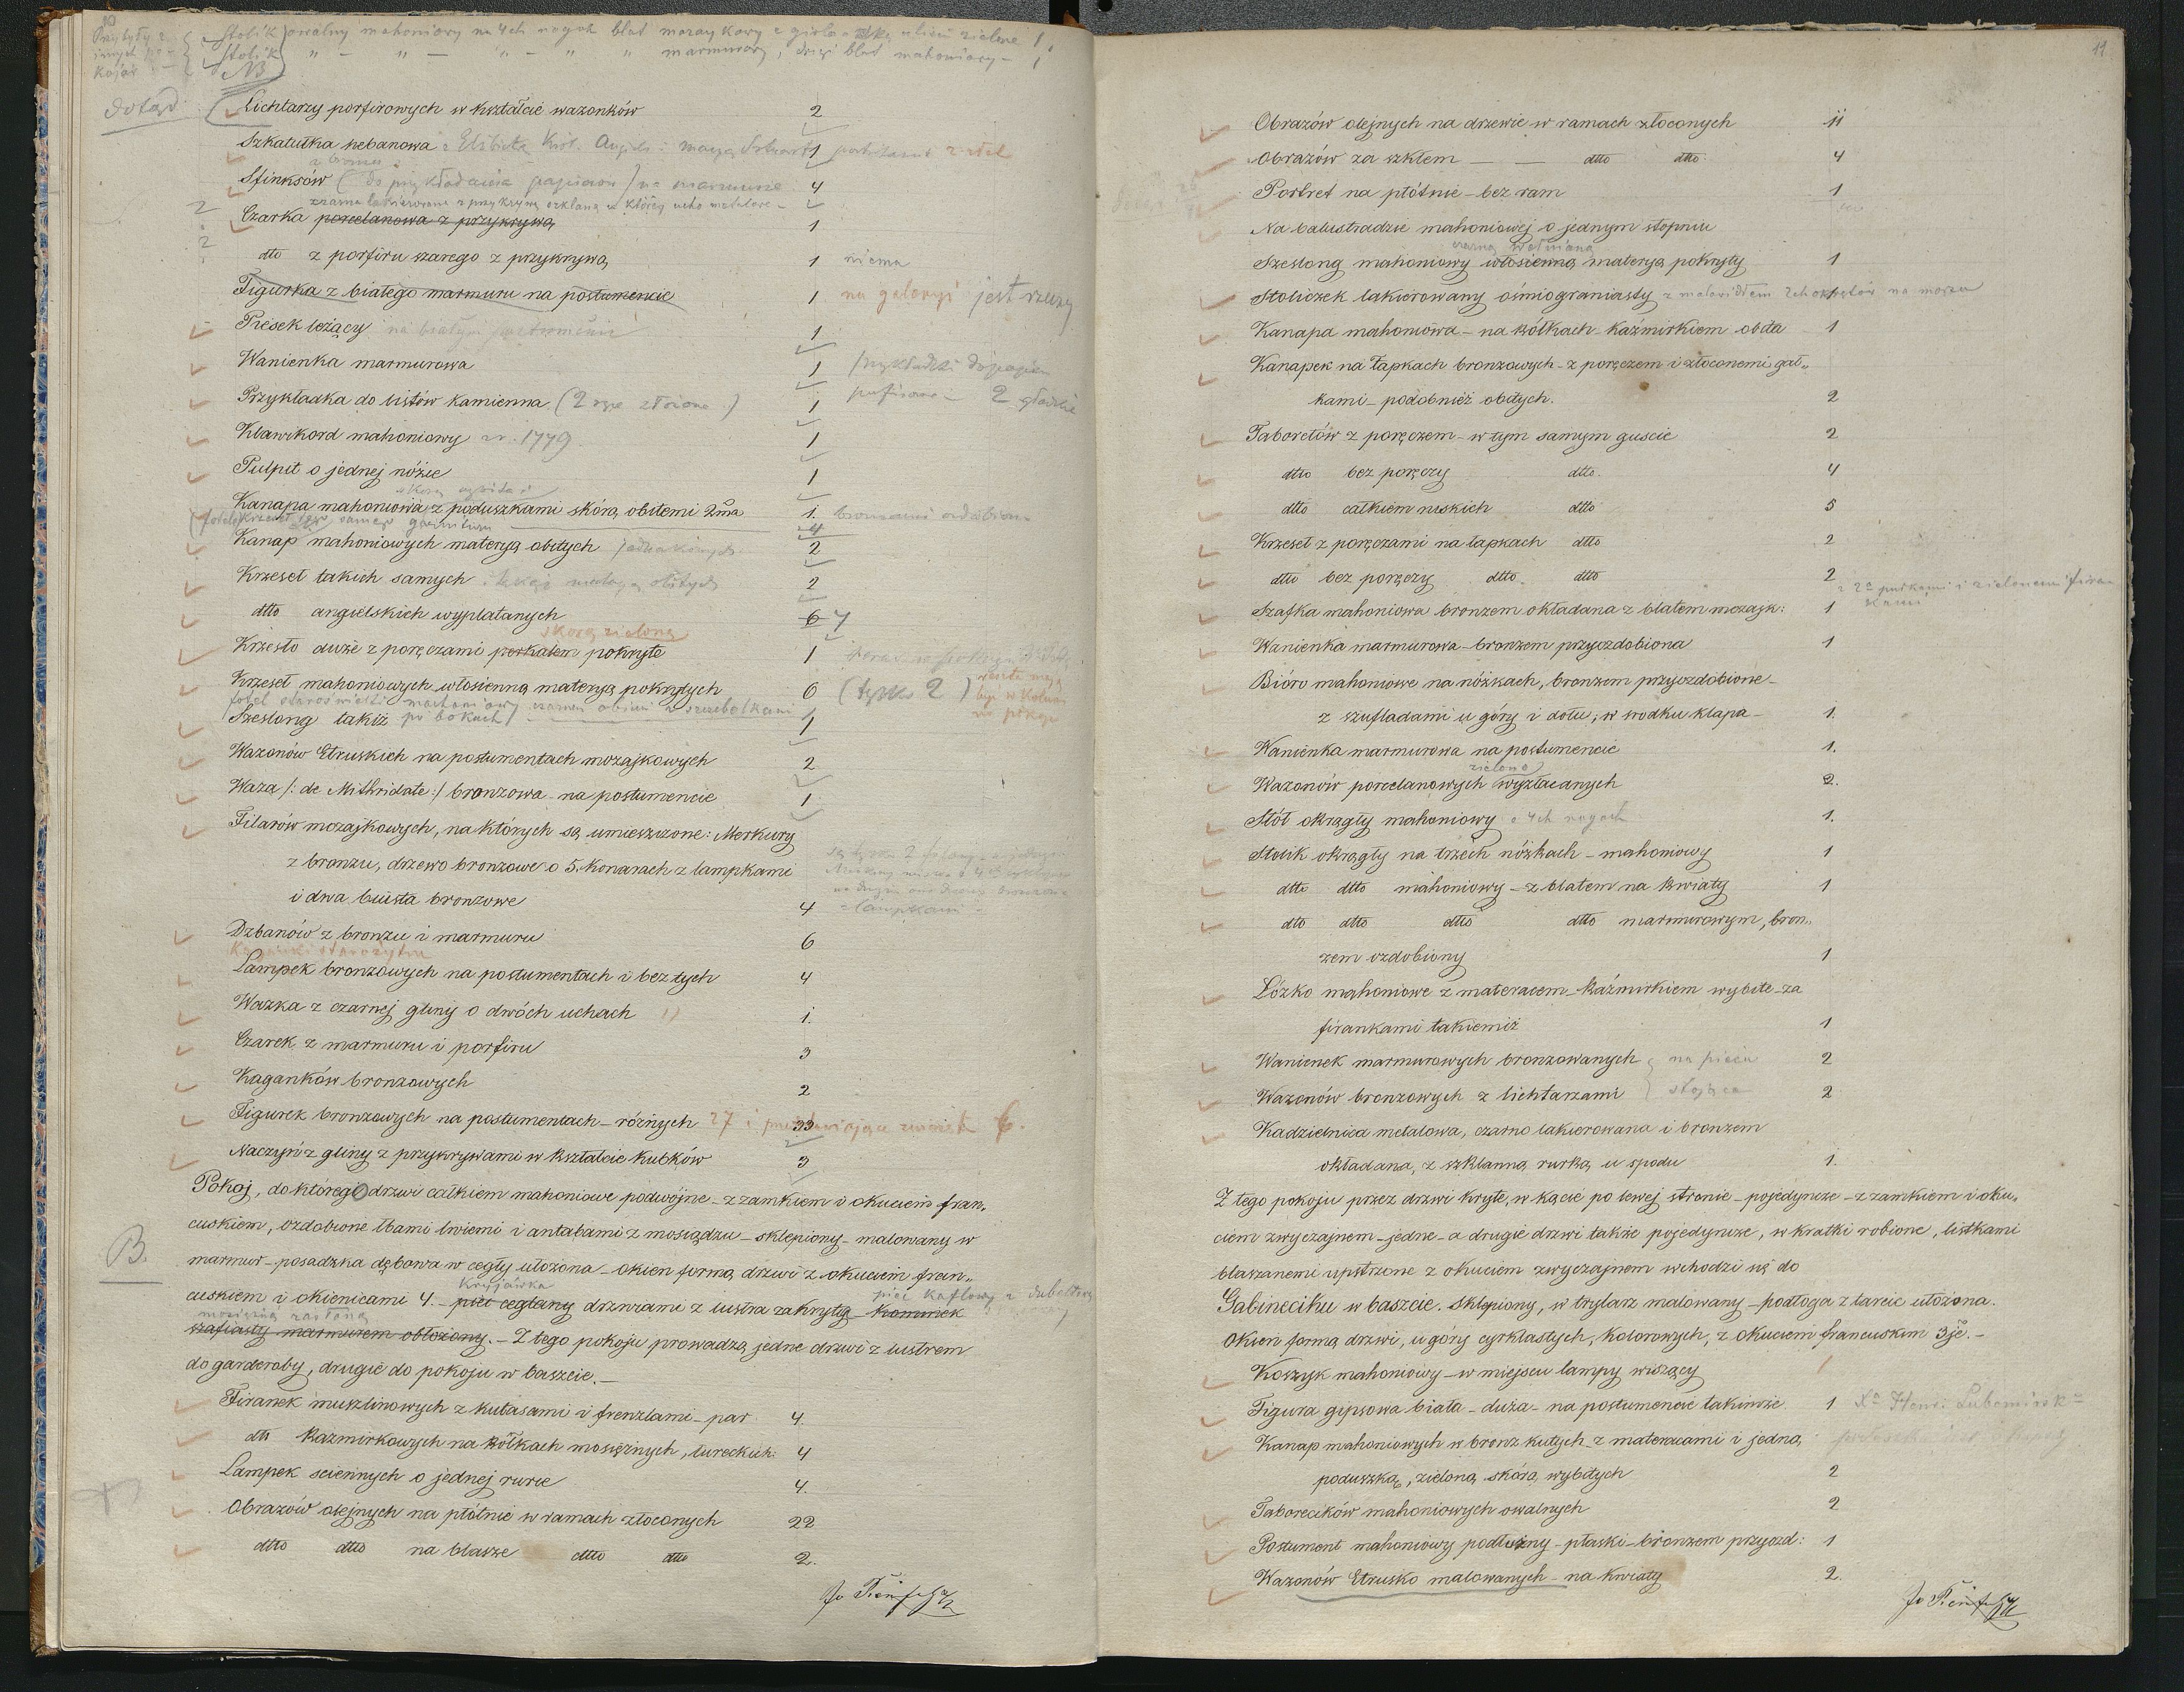 10
Stolik owalny mahoniowy na 4ch nogach blat mozaykowy z zielone 1
Stolik " — " — " — " " marmurowy, blat mahoniowy — 1
NB
dotąd
Lichtarzy porfirowych w kształcie wazonków 2
Szkatułka hebanowa Elżbieta Król. Angiels: 1
z bronzu
Sfinksów (do przykładania papierów) na marmurze 4
Czarka porcelanowa z przykrywą 1
dto z porfiru szarego z przykrywą 1 niema
Figurka z białego marmuru na postumencie 1 na galeryi jest
Piesek leżący na białym postumencie 1
Wanienka marmurowa 1
Przykładka do listów kamienna (2 złożone) 1
Klawikord mahoniowy z r. 1779 1
Pulpit o jednej nóżce 1
Kanapa mahoniowa z poduszkami skórą obitemi 2ma 1. bronzami
4
Kanap mahoniowych materyą obitych jednakowych 2
Krzeseł takich samych materyą obitych 2
dtto angielskich wyplatanych 6 7
skórą zieloną
Krzesło duże z poręczami perkalem pokryte 1
Krzeseł mahoniowych włosienną materyą pokrytych 6 (tylko 2)
Szeslong takiż po bokach 1
Wazonów Etruskich na postumentach mozajkowych 2
Waza /: de Mithridate :/ bronzowa na postumencie 1
Filarów mozajkowych, na których są umieszczone: Merkury
z bronzu, drzewo bronzowe o 5. Konarach z lampkami
i dwa biusta bronzowe 4 lampkami
Dzbanów z bronzu i marmuru 6
Lampek bronzowych na postumentach i bez tych 4
Wazka z czarnej gliny o dwóch uchach 1.
Czarek z marmuru i porfiru 3
Kaganków bronzowych 2
Figurek bronzowych na postumentach – różnych 27 i 33 6.
Naczyń z gliny z przykrywami w kształcie kubków 3
Pokoj, do którego drzwi całkiem mahoniowe podwójne – z zamkiem i okuciem fran„
cuskiem, ozdobione łbami lwiemi i antabami z mosiądzu – sklepiony – malowany w
B.
marmur – posadzka dębowa w cegły ułożona – okien formą drzwi z okuciem fran„
Kryjówka piec kaflowy
cuskiem i okienicami 4. – piec ceglany drzwiami z lustra zakryty – kominek
szafiasty marmurem obłożony. – Z tego pokoju prowadzą jedne drzwi z lustrem
do garderoby, drugie do pokoju w baszcie. –
Firanek muszlinowych z kutasami i frenzlami – par 4.
dtt kazmirkowych na kółkach mosiężnych, tureckich: 4
Lampek sciennych o jednej rurce 4.
Obrazów olejnych na płótnie w ramach złoconych 22
dtto dtto na blasze dtto dtto 2.
11
Obrazów olejnych na drzewie w ramach złoconych 11
Obrazów za szkłem — — dtto dtto 4
Portret na płótnie – bez ram 1
Na balustradzie mahoniowej o jednym stopniu
czarną wełnianą
Szeslong mahoniowy włosienną materyą pokryty 1
Stoliczek lakierowany ośmiograniasty z malowidłem 2ch okrętów na morzu 1
Kanapa mahoniowa – na kółkach – kaźmirkiem obita 1
Kanapek na łapkach bronzowych – z poręczem i złoconemi gał„
kami – podobnież obitych. 2
Taboretów z poręczem – w tym samym guscie 2
dtto bez poręczy dtto. 4
dtto całkiem niskich dtto 5
Krzeseł z poręczami na łapkach dtto 2
dtto bez poręczy dtto dtto 2
Szafka mahoniowa bronzem okładana z blatem mozajk: 1 z 2a półkami i zielonemi firankami
Wanienka marmurowa – bronzem przyozdobiona 1
Bióro mahoniowe na nóżkach, bronzem przyozdobione –
z szufladami u góry i dołu, w srodku klapa – 1.
Wanienka marmurowa na postumencie 1.
zielono
Wazonów porcelanowych wyzłacanych 2.
Stół okrągły mahoniowy o 4ch nogach 1.
Stolik okrągły na trzech nóżkach – mahoniowy 1
dtto dtto mahoniowy – z blatem na kwiaty 1
dtto dtto dtto dtto marmurowym, bron„
zem ozdobiony 1
Łóżko mahoniowe z materacem – kaźmirkiem wybite – za
firankami takiemiż 1
Wanienek marmurowych bronzowanych na piecu 2
Wazonów bronzowych z lichtarzami stojące 2
Kadzielnica metalowa, czarno lakierowana i bronzem
okładana, z szklanną rurką u spodu 1.
Z tego pokoju przez drzwi kryte, w kącie po lewej stronie – pojedyncze – z zamkiem i oku„
ciem zwyczajnem – jedne – a drugie drzwi także pojedyncze, w kratki robione, listkami
blaszanemi upstrzone z okuciem zwyczajnem wchodzi się do
Gabineciku w baszcie. Sklepiony, w trylarz malowany – podłoga z tarcic ułożona.
Okien formą drzwi, u góry cyrklastych, kolorowych, z okuciem francuskim 3je. –
Koszyk mahoniowy – w miejscu lampy wiszący 1
Figura gipsowa biała – duża – na postumencie takimże 1 Xa Henr. Lubomirsk
Kanap mahoniowych w bronz kutych – z materacami i jedną
poduszką, zieloną skórą wybitych 2
Taborecików mahoniowych owalnych 2
Postument mahoniowy podłużny – płaski – bronzem przyozd: 1
Wazonów Etrusko malowanych – na kwiaty 2.